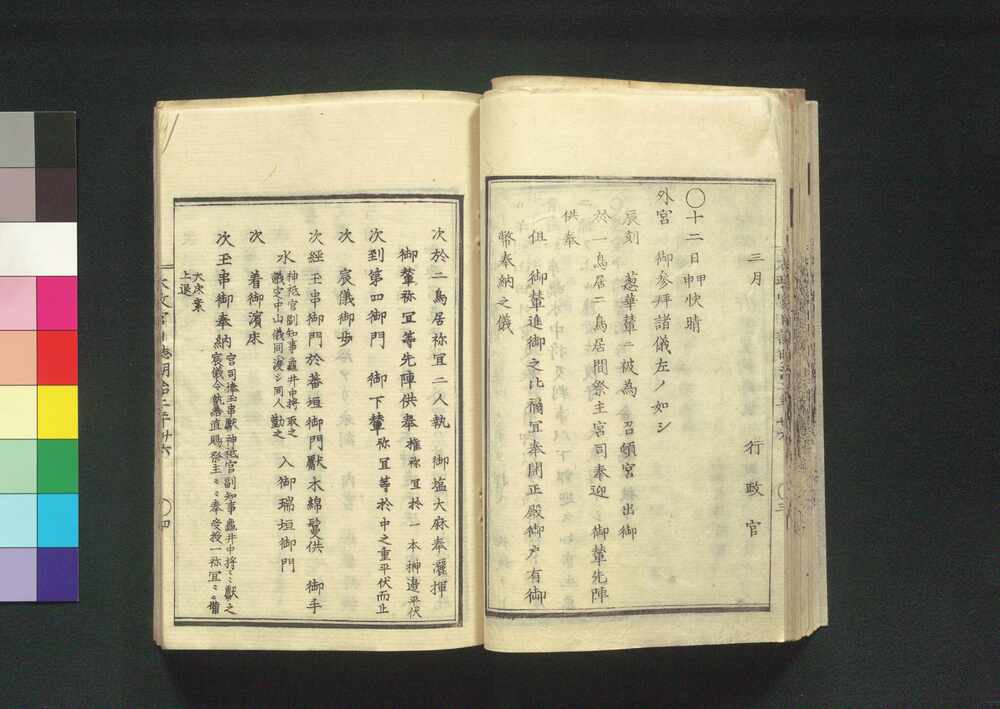 三月
行政官
〇十二日甲申快晴
外宮 御参拝諸儀左ノ如シ
辰刻 葱華輦ニ被為 召頓宮被出御
於一鳥居二鳥居間祭主宮司奉迎 御輦先陣
供奉
但 御輦進御之比福冝奉開正殿御戸有御
幣奉納之儀
次於二鳥居祢冝二人執 御塩大麻奉灑揮
御輦祢冝等先陣供奉権祢冝於一本榊邉平伏
次到第四御門 御下輦祢冝等於中之重平伏而止
次 宸儀御歩
次經玉串御門於蕃垣御門獻木綿鬘供 御手
水神祗官副知事亀井中将取之儀定中山儀同渡シ同人勤之 入御瑞垣御門
次 着御濱床
次玉串御奉納宮司捧玉串獻神祗官副知事亀井中将々々獻之宸儀令執給直賜祭主々々奉受授一祢冝々々備
大床案
上退
〇四